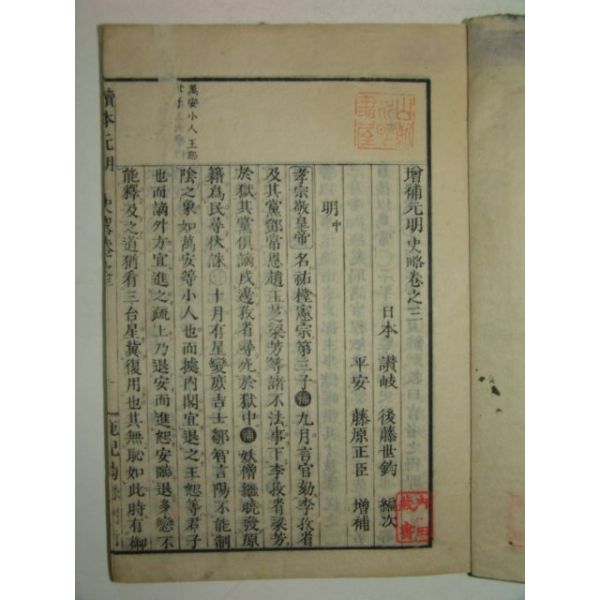 增補元明史略卷之三
日本 讃岐 後藤世鈞 編次
平安 藤原正臣 增補
明中
孝宗敬皇帝 名祐樘憲宗第三子 九月言官劾李孜省
及其黨鄧常恩趙玉芝梁芳等諸不法事下李孜省梁芳
於獄其黨俱謫戍邊孜省尋死於獄中 妖僧繼曉發原
籍爲民尋伏誅 十月有星變庶吉士鄒智言陽不能制
陰之象如萬安等小人也而據內閣宜退之王恕等君子
也而謫外方宜進之疏上乃退安而進恕安臨退多戀不
能釋及之道猶看三台星冀復用也其無恥如此時有御
萬安小人王恕